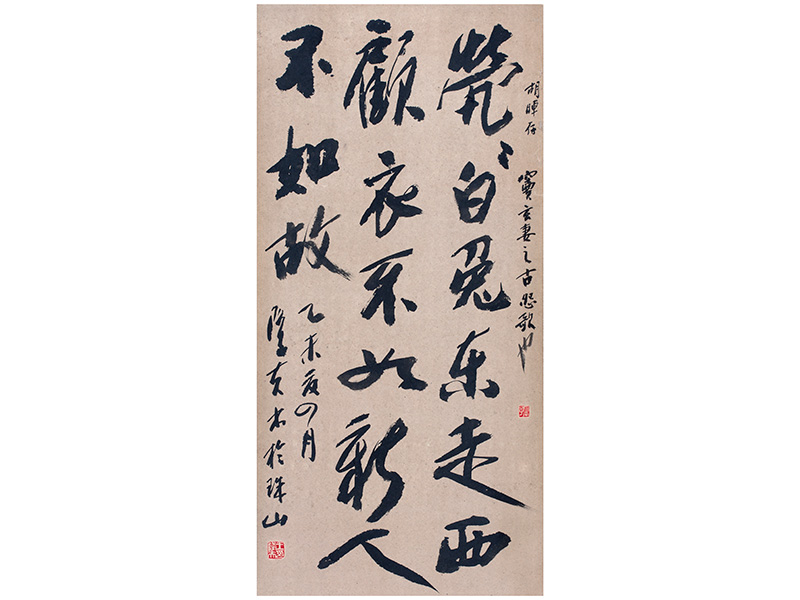 竇玄妻之古怨歌也
煢〻白兔東走西
顧衣不如新人
不如故
乙未夏四月
於珠山